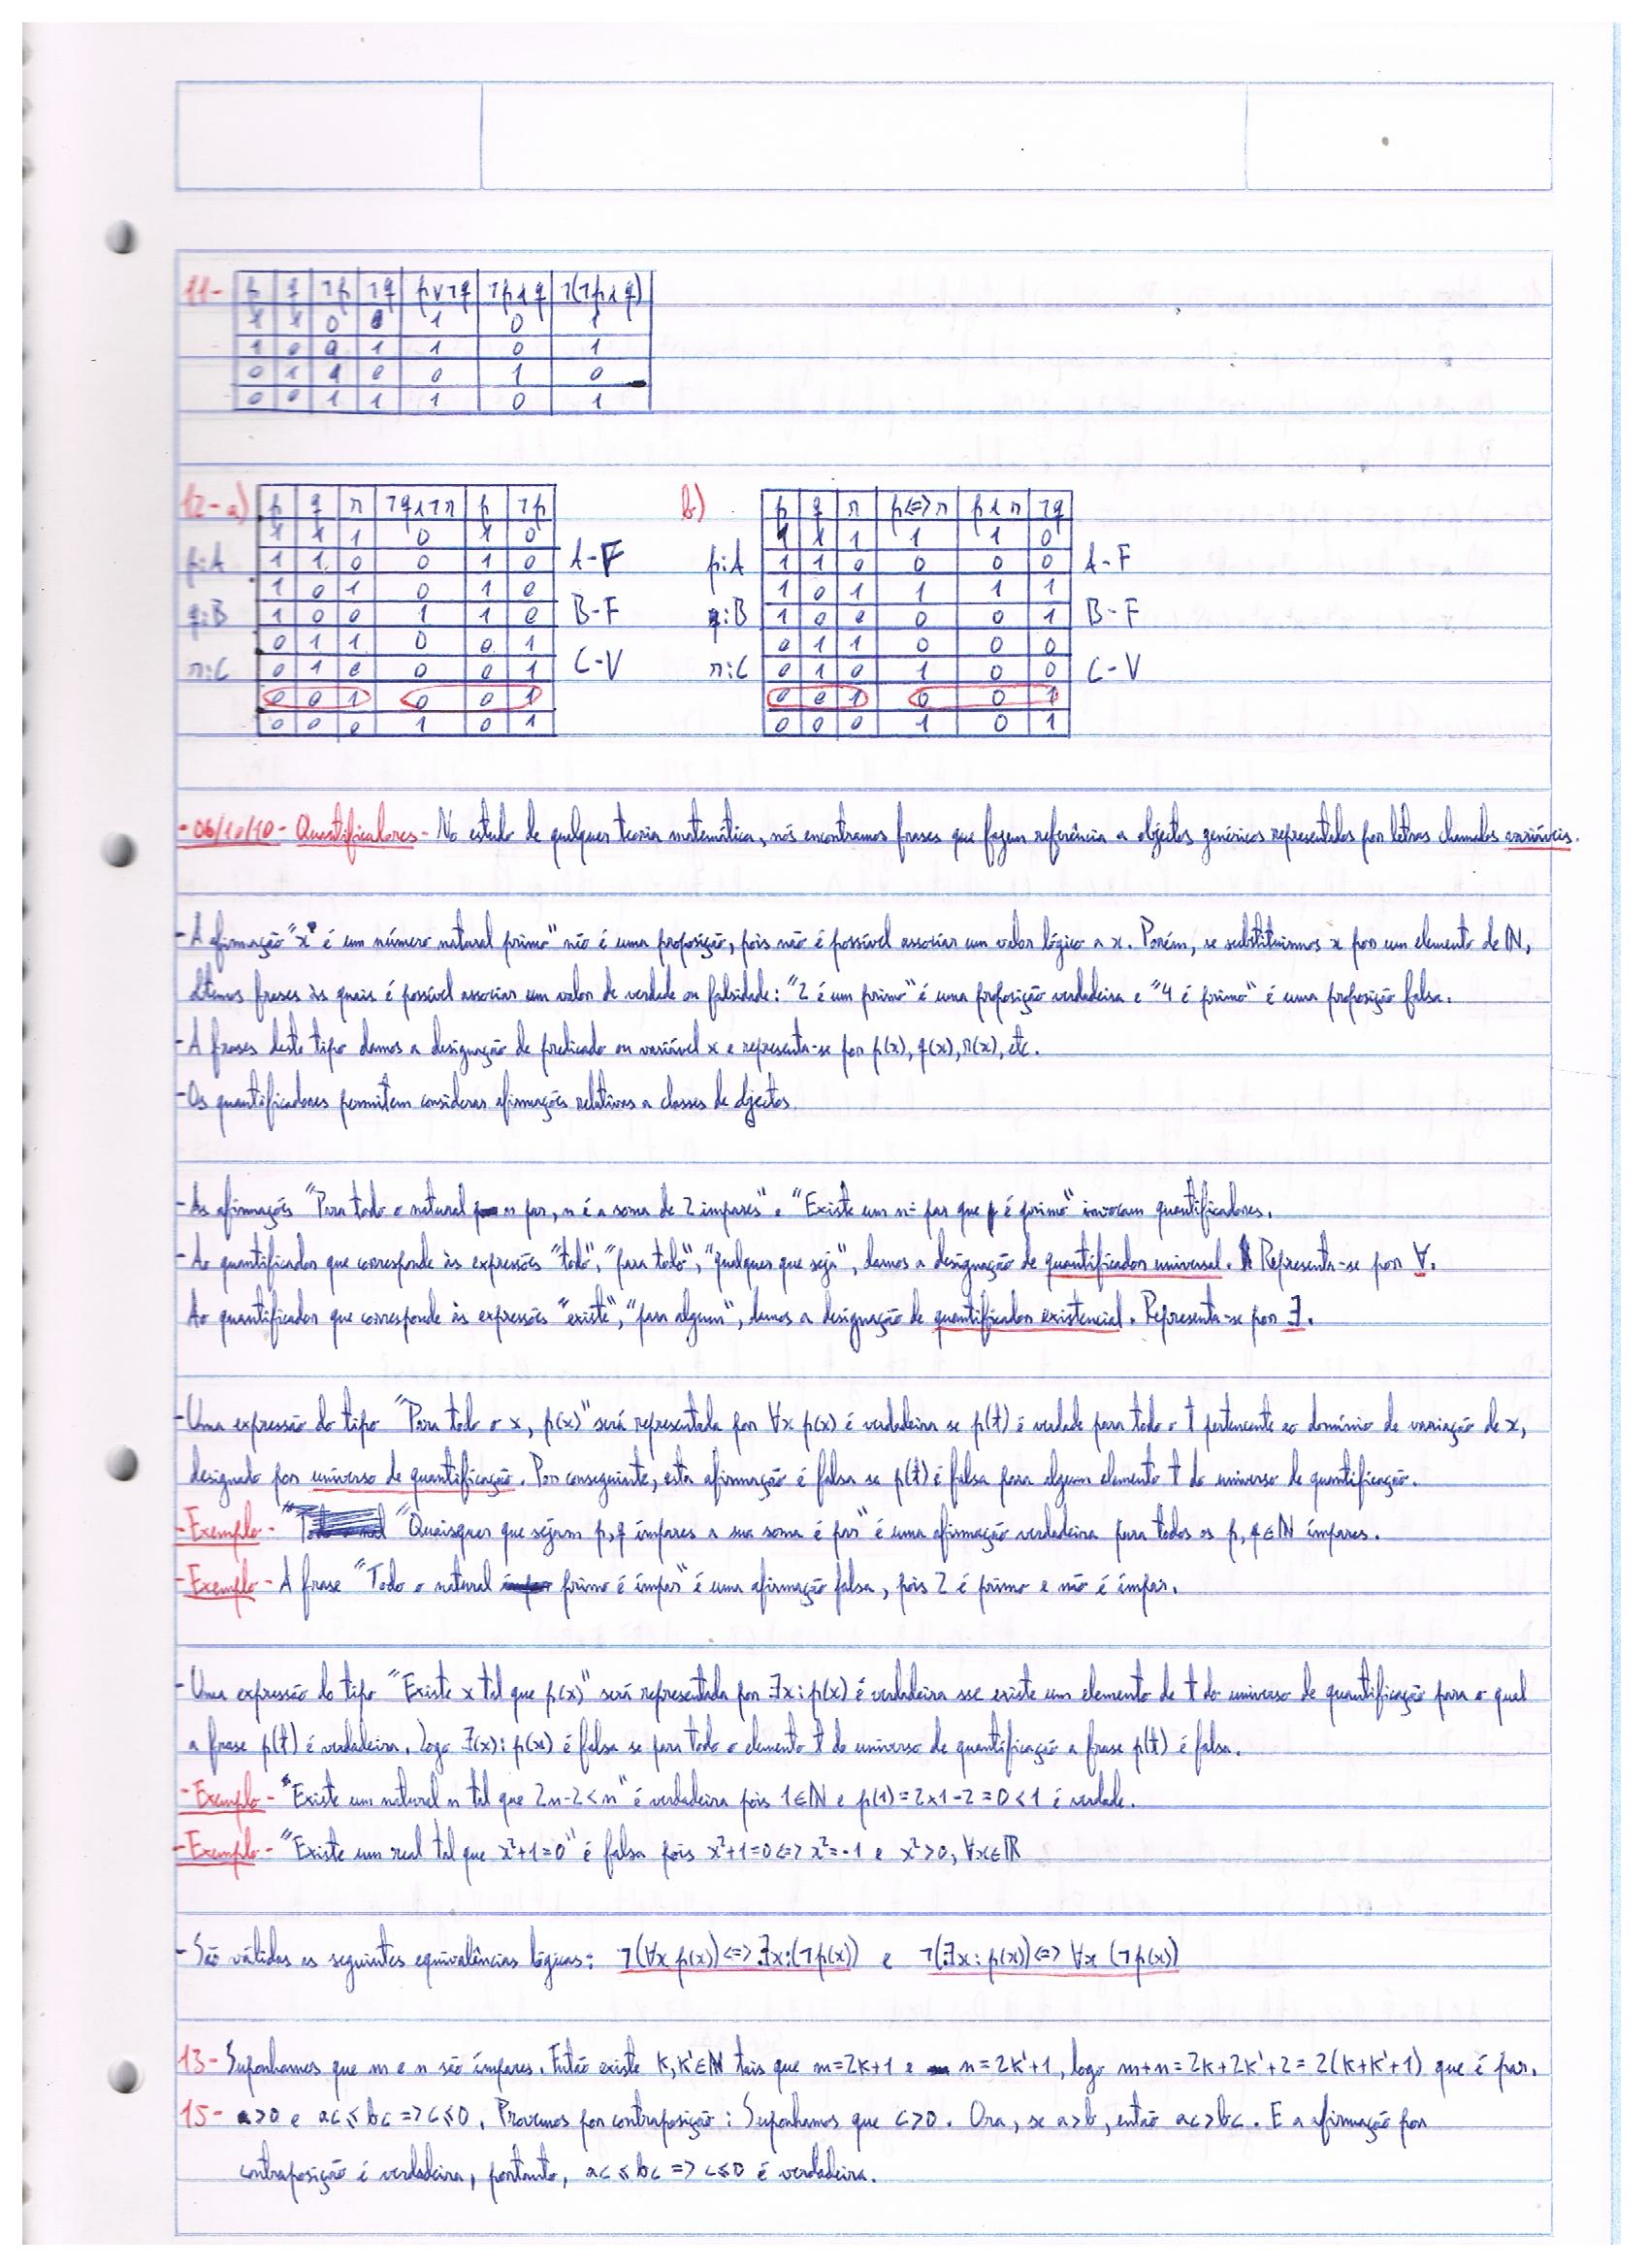 11- p q ¬p ¬q p∨¬q ¬p∧q ¬(¬p∧q)
1 1 0 0 1 0 1
1 0 0 1 1 0 1
0 1 1 0 0 1 0
0 0 1 1 1 0 1
12-a) p q r ¬q∧¬r p ¬p
1 1 1 0 1 0
p:A 1 1 0 0 1 0 A-F
1 0 1 0 1 0
q:B 1 0 0 1 1 0 B-F
0 1 1 0 0 1
r:C 0 1 0 0 0 1 C-V
0 0 1 0 0 1
0 0 0 1 0 1
b) p q r p<=>r p∧r ¬q
1 1 1 1 1 0
p:A 1 1 0 0 0 0 A-F
1 0 1 1 1 1
q:B 1 0 0 0 0 1 B-F
0 1 1 0 0 0
r:C 0 1 0 1 0 0 C-V
0 0 1 0 0 1
0 0 0 1 0 1
-06/10/10- Quantificadores- No estudo de qualquer teoria matemática, nós encontramos frases que fazem referência a objectos genéricos representados por letras chamadas variáveis.
-A afirmação "x" é um número natural primo" não é uma proposição, pois não é possível associar um valor lógico a x. Porém, se substituirmos x por um elemento de ℕ,
obtemos frases às quais é possível associar um valor de verdade ou falsidade: "2 é um primo" é uma proposição verdadeira e "4 é primo" é uma proposição falsa.
-A frases deste tipo damos a designação de predicado ou variável x e representa-se por p(x), q(x), r(x), etc.
-Os quantificadores permitem considerar afirmações relativas a classes de objectos.
-As afirmações "Para todo o natural n par, n é a soma de 2 impares" e "Existe um nº par que é primo" invocam quantificadores.
-Ao quantificador que corresponde às expressões "todo", "para todo", "qualquer que seja", damos a designação de quantificador universal. Representa-se por ∀.
Ao quantificador que corresponde às expressões "existe", "para algum", damos a designação de quantificador existencial. Representa-se por ∃.
-Uma expressão do tipo "Para todo o x, p(x)" será representada por ∀x p(x) é verdadeira se p(t) é verdade para todo o t pertencente ao domínio de variação de x,
designado por universo de quantificação. Por conseguinte, esta afirmação é falsa se p(t) é falsa para algum elemento t do universo de quantificação.
-Exemplo- "Quaisquer que sejam p,q ímpares a sua soma é par" é uma afirmação verdadeira para todos os p,q∈ℕ ímpares.
-Exemplo- A frase "Todo o natural primo é ímpar" é uma afirmação falsa, pois 2 é primo e não é ímpar.
-Uma expressão do tipo "Existe x tal que p(x)" será representada por ∃x:p(x) é verdadeira sse existe um elemento de t do universo de quantificação para o qual
a frase p(t) é verdadeira. Logo ∃(x): p(x) é falsa se para todo o elemento t do universo de quantificação a frase p(t) é falsa.
-Exemplo- "Existe um natural n tal que 2n-2<n" é verdadeira pois 1∈ℕ e p(1)=2×1-2=0<1 é verdade.
-Exemplo- "Existe um real tal que x²+1=0" é falsa pois x²+1=0<=>x²=-1 e x²>0, ∀x∈ℝ
-São válidas as seguintes equivalências lógicas: ¬(∀x p(x))<=>∃x:(¬p(x)) e ¬(∃x:p(x))<=>∀x (¬p(x))
13- Suponhamos que m e n são ímpares. Então existe K,K'∈ℕ tais que m=2K+1 e n=2K'+1, logo m+n=2K+2K'+2=2(K+K'+1) que é par.
15- a>0 e ac≤bc=>c≤0. Provemos por contraposição: Suponhamos que c>0. Ora, se a>b, então ac>bc. E a afirmação por
contraposição é verdadeira, portanto, ac≤bc=>c≤0 é verdadeira.